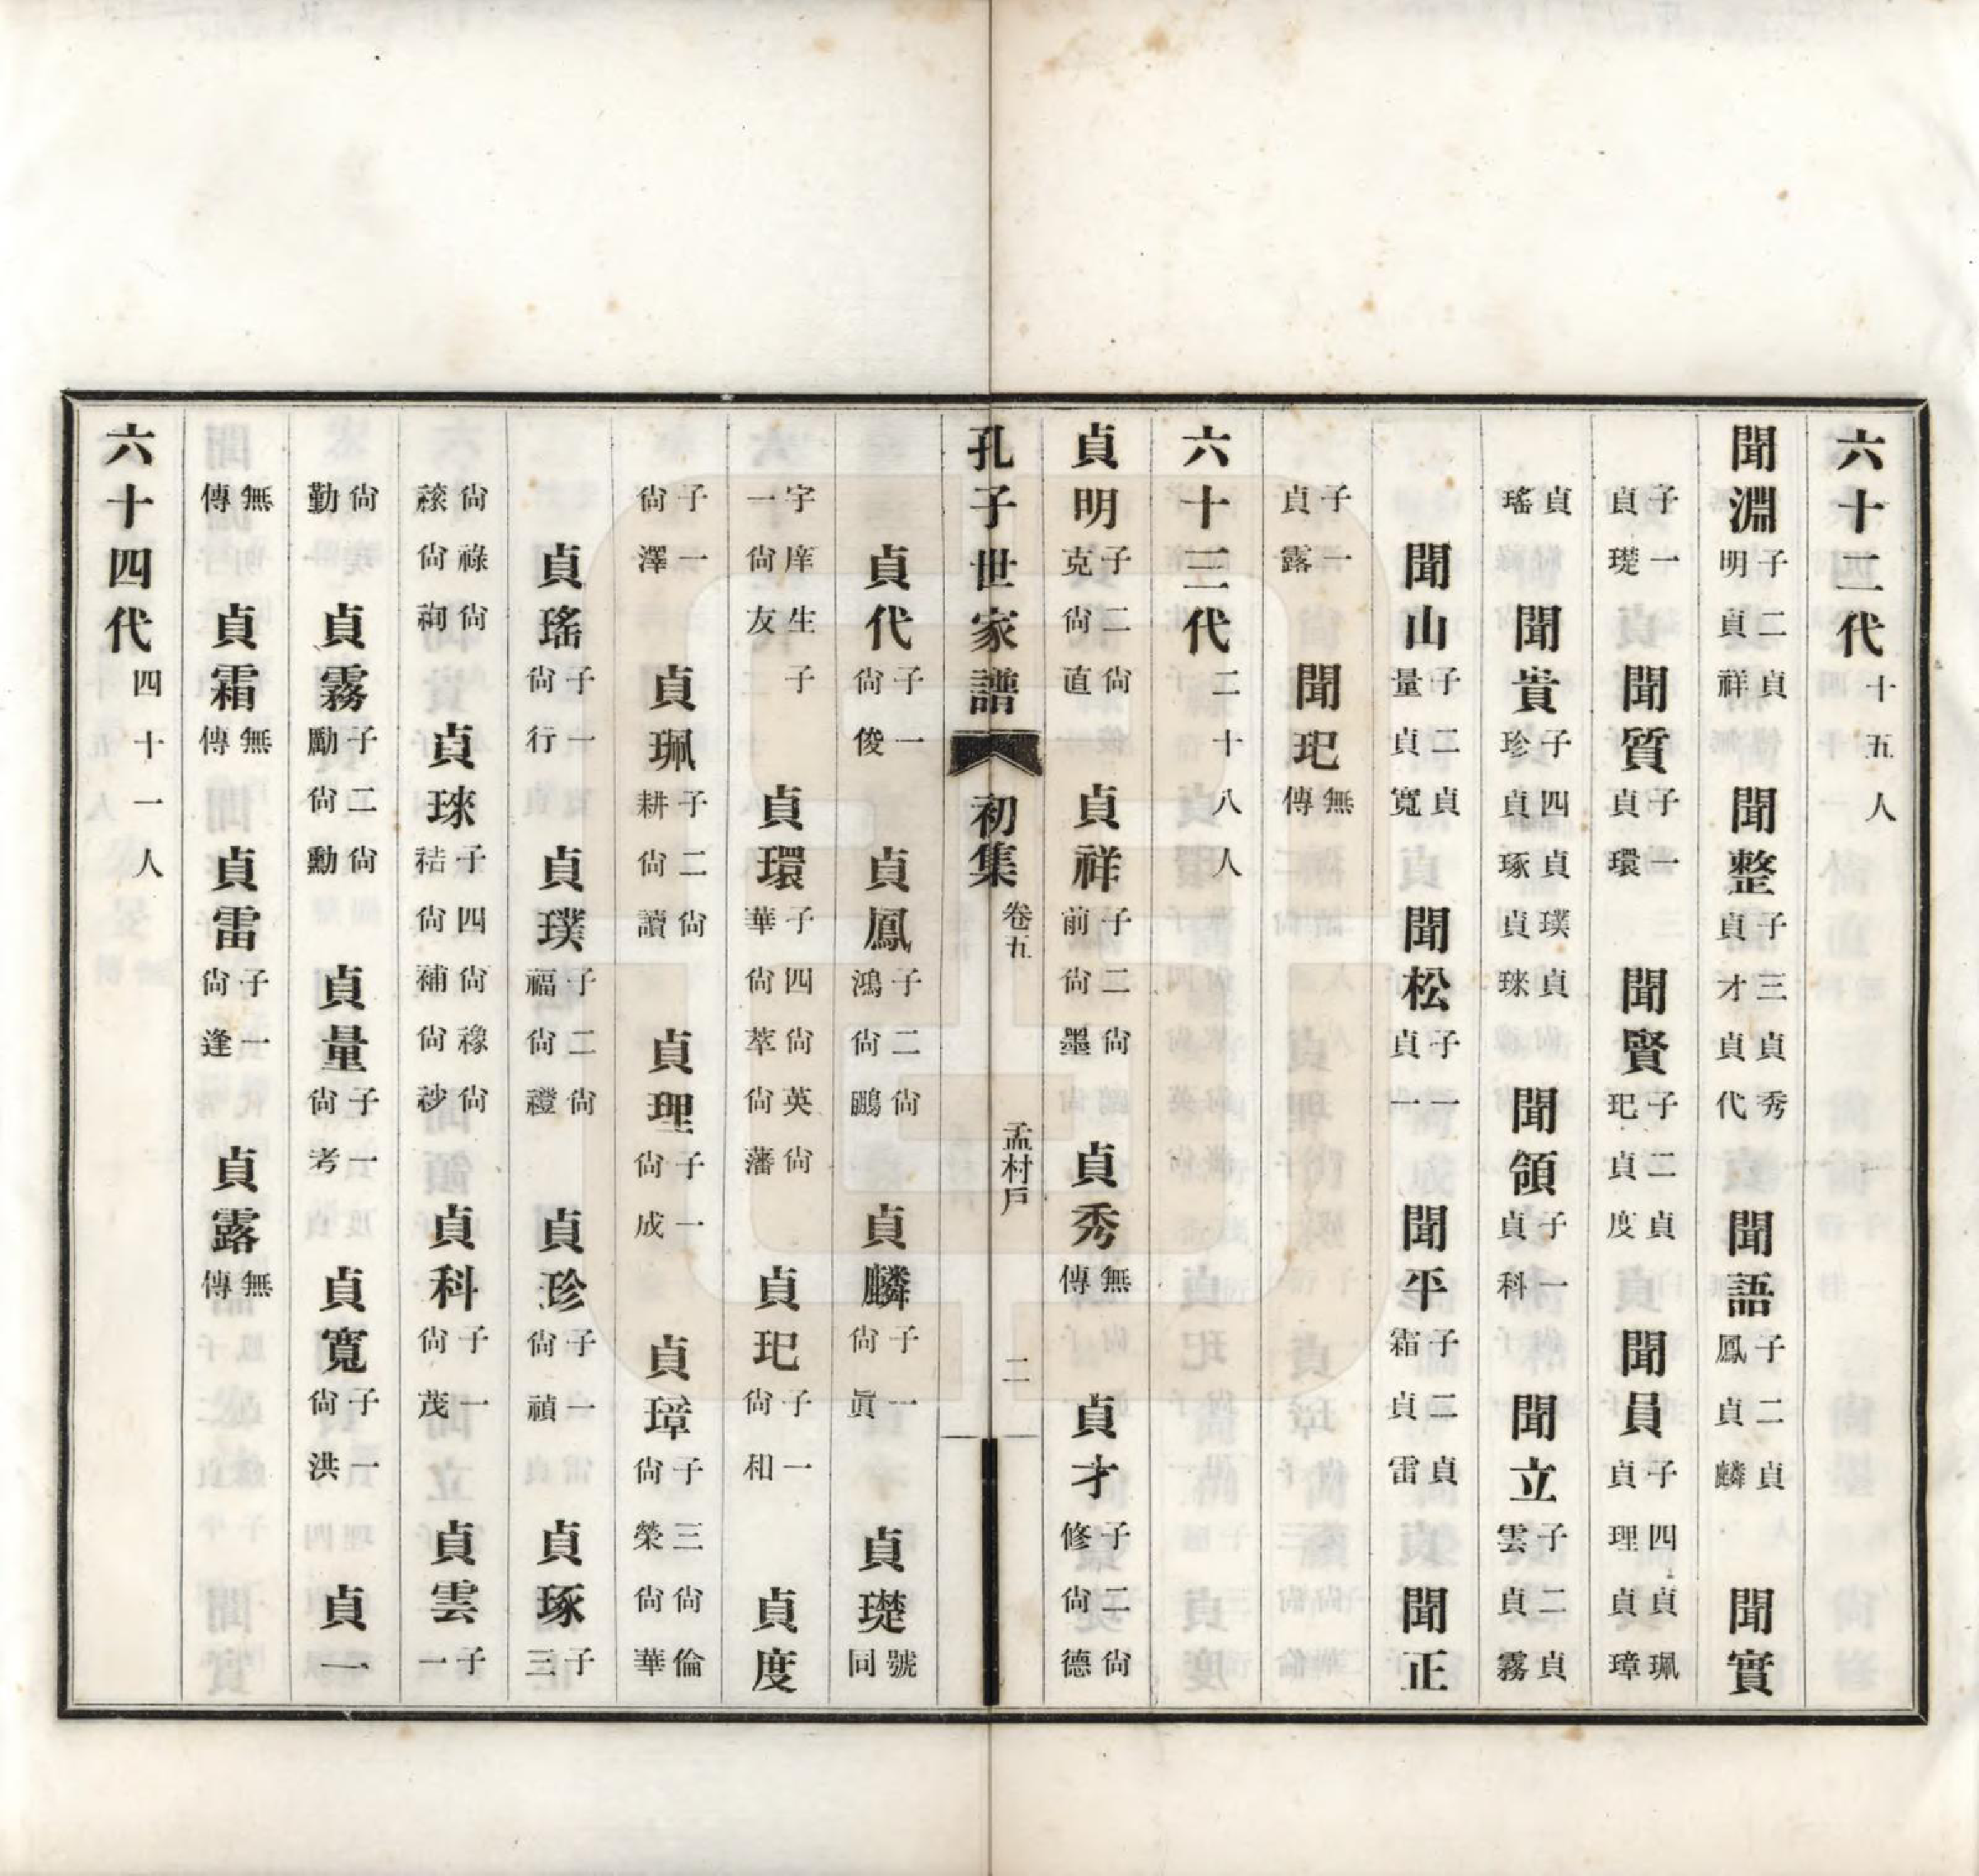 六十二代十五人
聞淵子二貞明貞祥　聞整子三貞秀貞才貞代　聞語子二貞鳳貞麟　聞實
子一貞璴　聞質子一貞環　聞賢子二貞玘貞度　聞員子四貞珮貞理貞璋
貞瑤　聞貴子四貞璞貞珍貞琢貞琜　聞領子一貞科　聞立子二貞雲貞霧
聞山子二貞量貞寬　聞松子一貞一　聞平子二貞霜貞雷　聞正
子一貞露　聞玘無傳
六十三代二十八人
貞明子二尙克尙直　貞祥子二尙前尙墨　貞秀無傳　貞才子二尙修尙德
孔子世家譜　初集　卷五　孟村戶　二
貞代子一尙俊　貞鳳子二尙鴻尙鵬　貞麟子一尙眞　貞璴號同
一字庠生子一尙友　貞環子四尙華尙英尙萃尙藩　貞玘子一尙和　貞度
子一尙澤　貞珮子二尙耕尙讀　貞理子一尙成　貞璋子三尙倫尙榮尙華
貞瑤子一尙行　貞璞子二尙福尙禮　貞珍子一尙禎　貞琢子三
尙祿尙䘵尙祹　貞琜子四尙祮尙禒尙補尙䄛　貞科子一尙茂　貞雲子一
尙勤　貞霧子二尙勵尙勳　貞量子一尙考　貞寬子一尙洪　貞一
無傳　貞霜無傳　貞雷子一尙逢　貞露無傳
六十四代四十一人